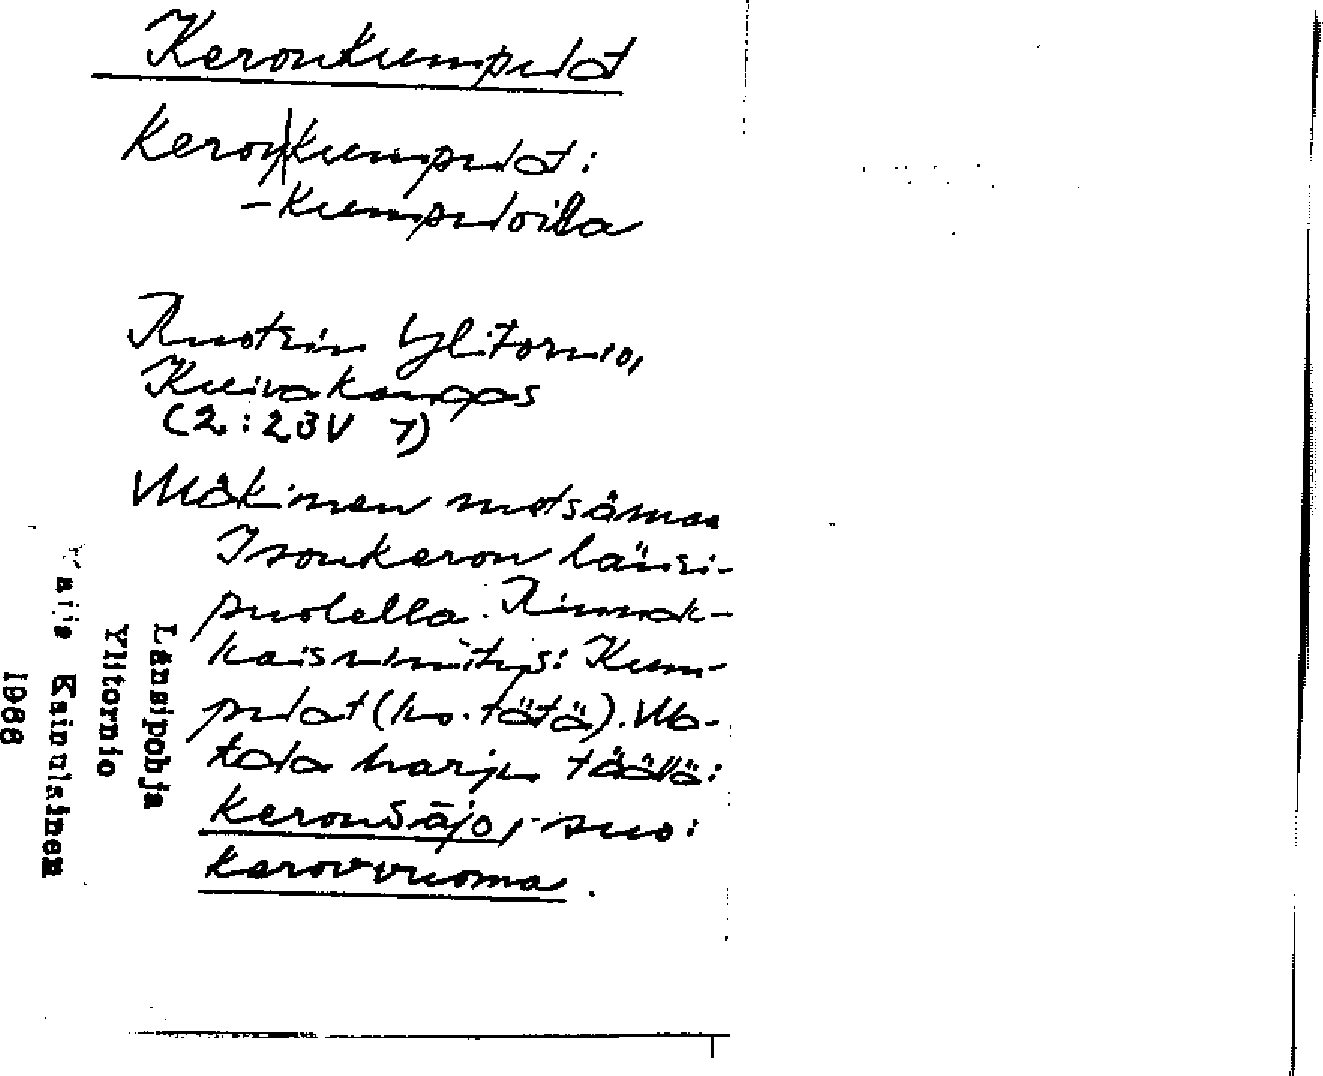 Keronkumpulat
Keron|kumpulat:
-kumpuloilla
Ruotsin Ylitornio,
Kuivakangas
(2:23V 7)
Mäkinen metsämaa
Isonkeron länsi-
puolella. Rinnak-
kaisnimitys: Kum-
pulat (ks. tätä). Ma-
tala harju täällä:
Keronsäjo, suo:
Kerovvuoma.
Länsipohja
Ylitornio
Kainulainen
1988